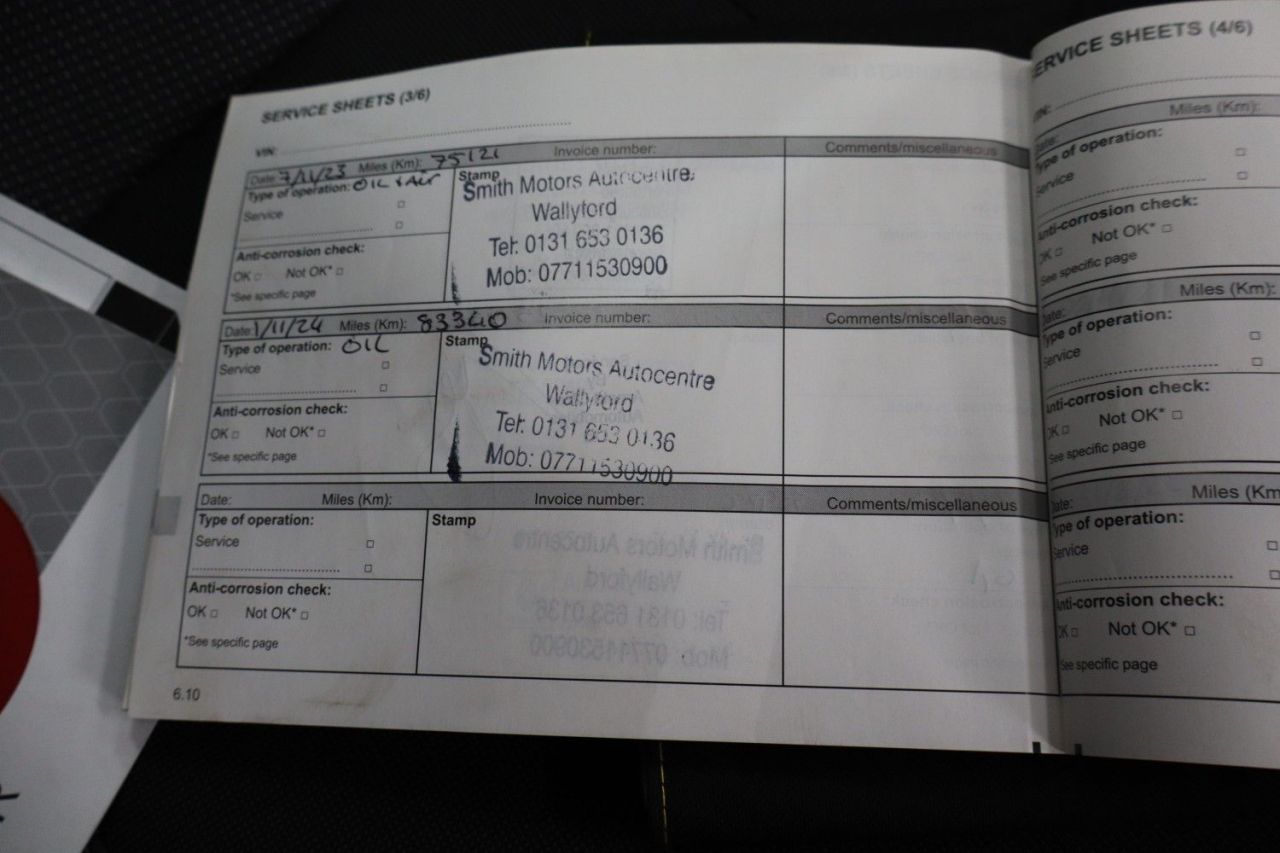 SERVICE SHEETS (3/6)
VIN:
Date: 7/11/23 Miles (Km): 75121 Invoice number: Comments/miscellaneous
Type of operation: OIL + AIR
Service
Anti-corrosion check:
OK Not OK*
*See specific page
Stamp
Smith Motors Autocentre
Wallyford
Tel: 0131 653 0136
Mob: 07711530900
Date: 1/11/24 Miles (Km): 83340 Invoice number: Comments/miscellaneous
Type of operation: OIL
Service
Anti-corrosion check:
OK Not OK*
*See specific page
Stamp
Smith Motors Autocentre
Wallyford
Tel: 0131 653 0136
Mob: 07711530900
Date: Miles (Km): Invoice number: Comments/miscellaneous
Type of operation:
Service
Anti-corrosion check:
OK Not OK*
*See specific page
Stamp
6.10
SERVICE SHEETS (4/6)
VIN:
Date: Miles (Km):
Type of operation:
Service
Anti-corrosion check:
OK Not OK*
*See specific page
Date: Miles (Km):
Type of operation:
Service
Anti-corrosion check:
OK Not OK*
*See specific page
Date: Miles (Km
Type of operation:
Service
Anti-corrosion check:
OK Not OK*
See specific page